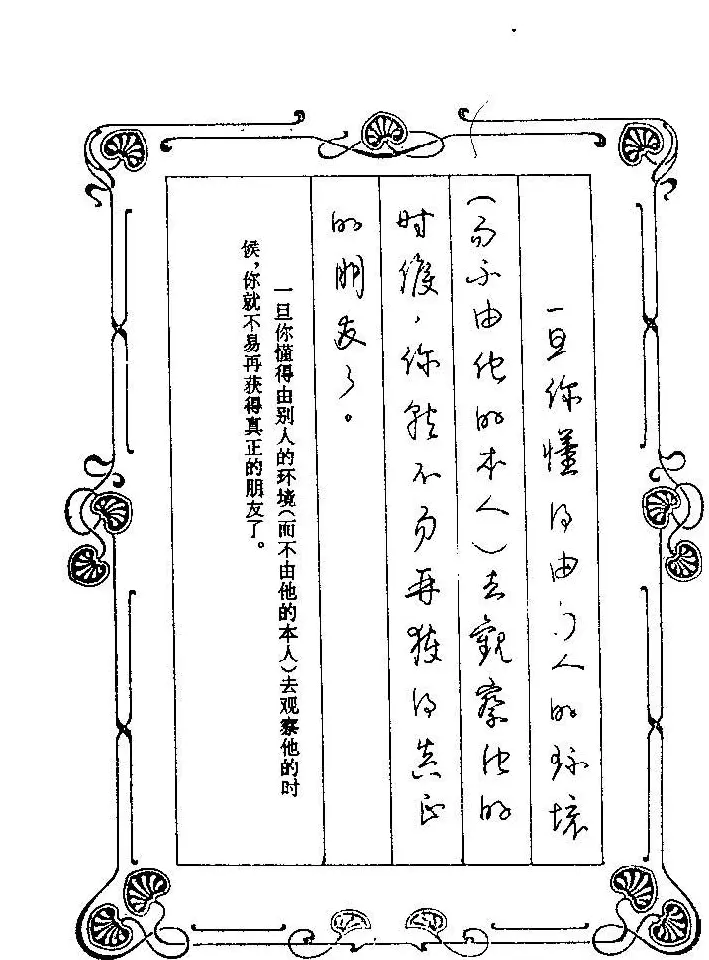 一旦你懂得由别人的环境
（而不由他的本人）去觀察他的
时候，你就不易再獲得真正
的朋友了。
一旦你懂得由别人的环境（而不由他的本人）去观察他的时
候，你就不易再获得真正的朋友了。